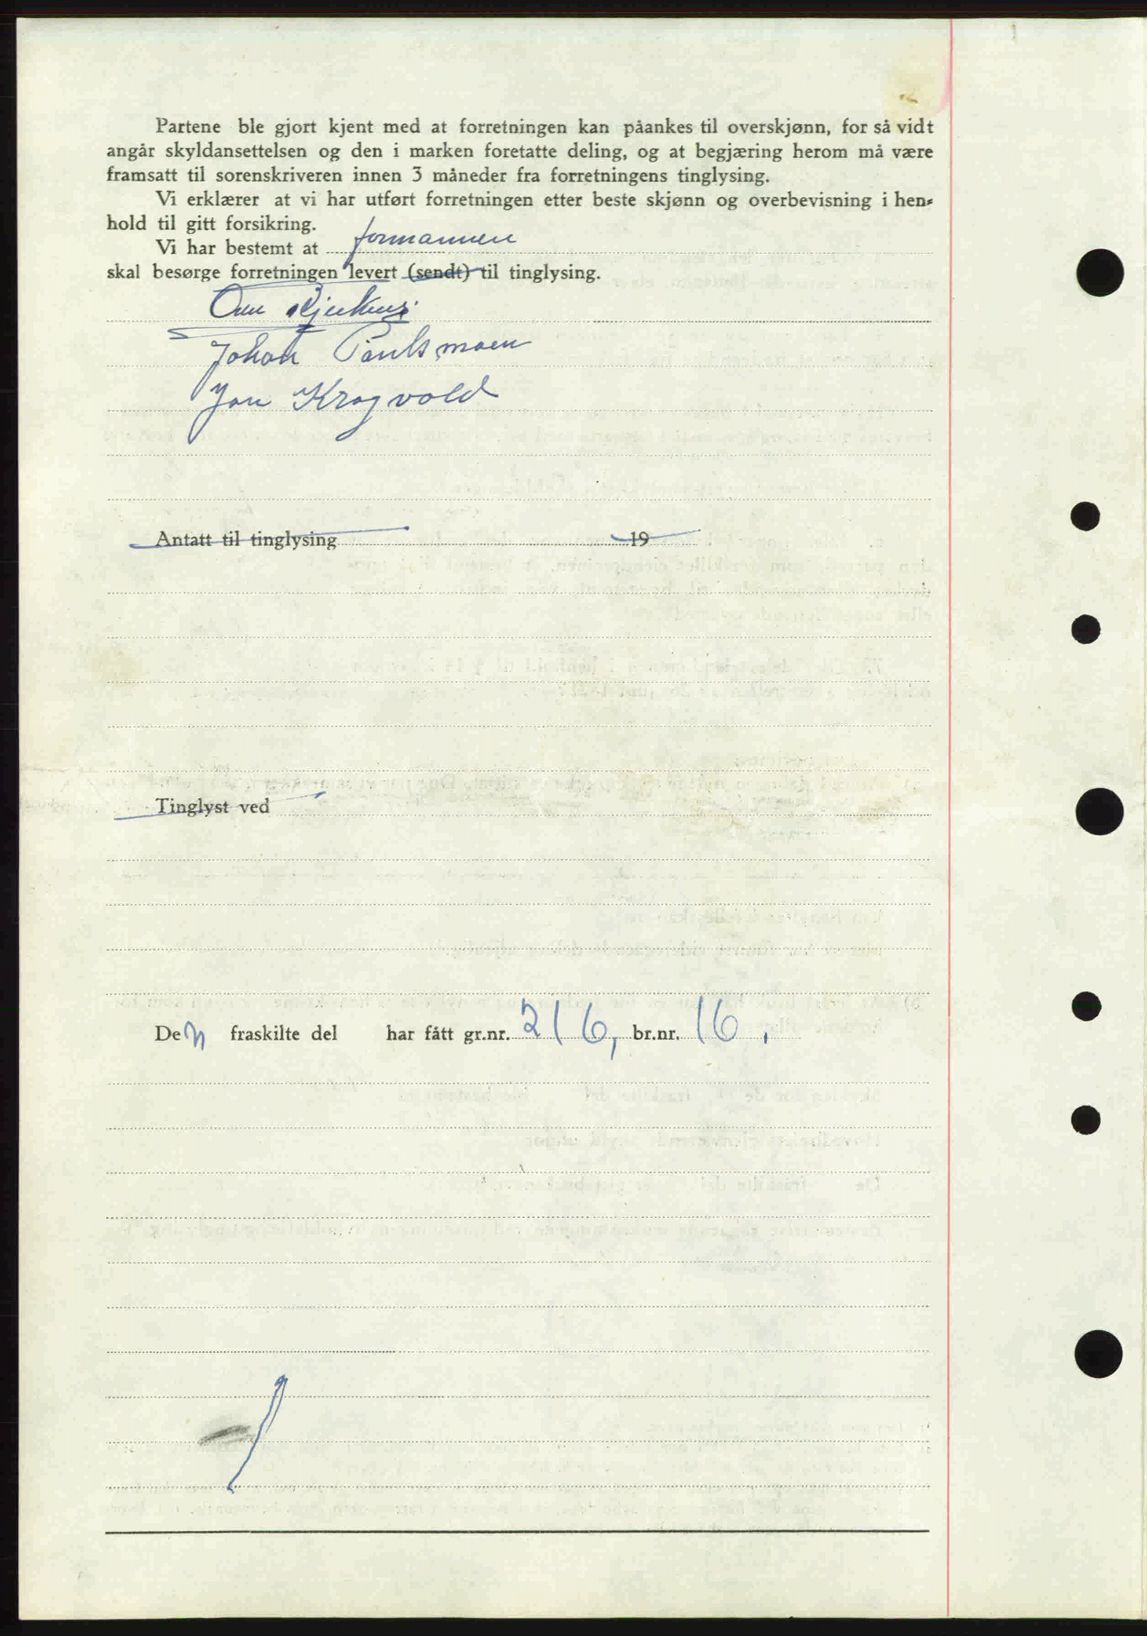 Partene ble gjort kjent med at forretningen kan påankes til overskjønn, for så vidt
angår skyldansettelsen og den i marken foretatte deling, og at begjæring herom må være
framsatt til sorenskriveren innen 3 måneder fra forretningens tinglysing.
Vi erklærer at vi har utført forretningen etter beste skjønn og overbevisning i hen-
hold til gitt forsikring.
Vi har bestemt at formannen
skal besørge forretningen levert (sendt) til tinglysing.
Johan Paulsmoen
Jon Krogvold
Antatt til tinglysing 19
Tinglyst ved
Den fraskilte del har fått gr.nr. 216, br.nr. 16.